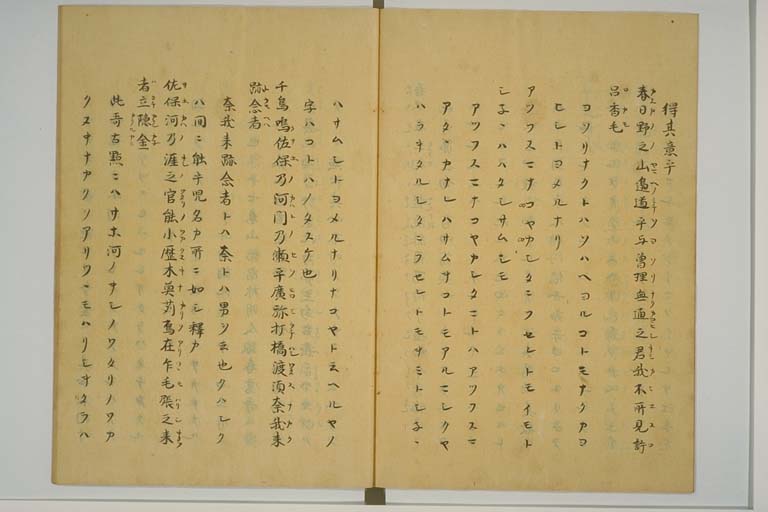 得其意乎
春日野之山邊道乎与曽理無通之君我不所見許
呂香毛
ヨソリナクトハソハヘヨルコトモナクカヨ
ヒシトヨメルナリ
アツフスマナコヤカシタニフセレトモイモト
シネハハタシサムシモ
アツフスマナコヤカシタニトハアツフスマ
アタタカナレハサムサコトモアルマシクヤ
ハラナタルシタニフセレトモサミトシネハ
ハサムシトヨメルナリナコヤトヱヘルヤノ
字ハコトハノタスケ也
千鳥鳴佐保乃河門乃瀬乎廣弥打橋渡須奈我来
跡念者
奈我来跡念者トハ奈トハ男ヲ云也久ハシク
ハ同ニ能乎児名カ所ニ如シ釋カ
佐保河乃涯之官能小歴木莫苅焉在乍毛張之来
者立隠金
此哥古點ニハサホ河ノキシノワタリノワカ
クヌキナカリソアリツヽモハリシキタラハ